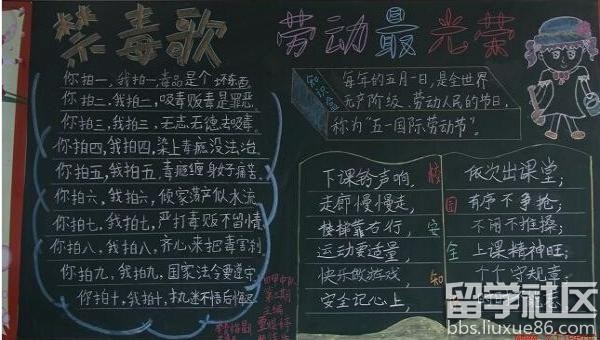 禁毒歌
你拍一，我拍一，毒品是个坏东西
你拍二，我拍二，吸毒贩毒是罪恶
你拍三，我拍三，无志无德去吸毒。
你拍四，我拍四，染上毒瘾没法治
你拍五，我拍五，毒瘾缠身好痛苦
你拍六，我拍六，倾家荡产似水流
你拍七，我拍七，严打毒贩不留情
你拍八，我拍八，齐心来把毒害
你拍九，我拍九，国家法令要遵守
你拍十，我拍十，执迷不悟后悔迟
第二期
主编
劳动最光荣
知识
每年的五月一日，是全世界
无产阶级、劳动人民的节日，
称为“五一国际劳动节”。
校园安全知
下课铃声响，
走廊慢慢走，
楼梯靠右行，
运动要适量，
快乐做游戏，
安全记心上，
依次出课堂；
有序不争抢；
不闹不推搡；
上课精神旺；
个个守规章；
留学社区
bbs.liuxue86.com